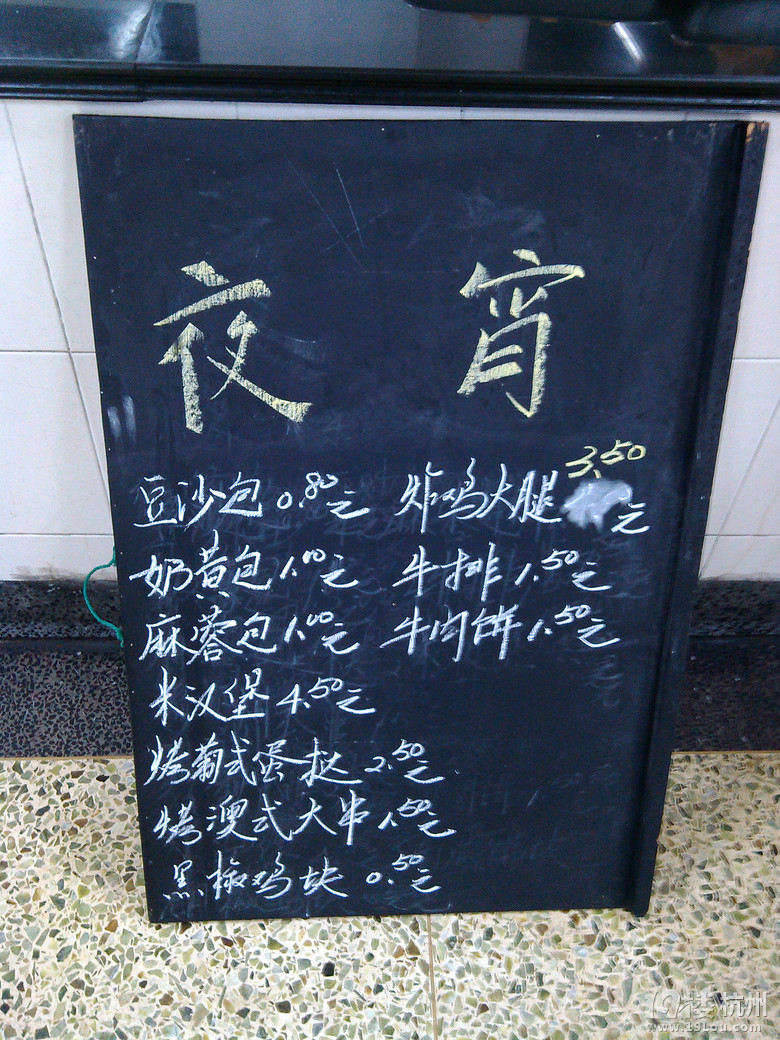 夜宵
豆沙包 0.80元 炸鸡大腿 3.50元
奶黄包 1.00元 牛排 1.50元
麻蓉包 1.00元 牛肉饼 1.50元
米汉堡 4.50元
烤葡式蛋挞 2.50元
烤澳式大串 1.50元
黑椒鸡块 0.50元
19楼 杭州
www.19lou.com